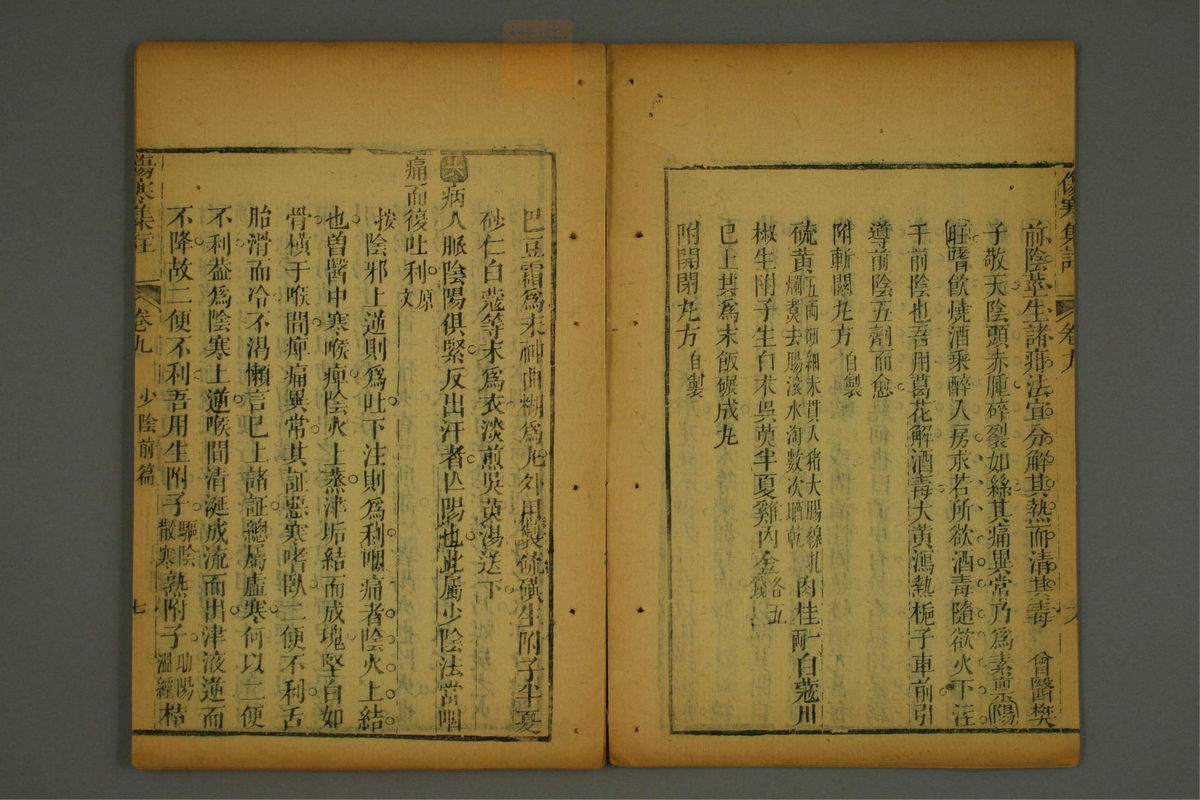 傷寒集註 卷九 六
前陰莖生諸疳法宜分解其熱而清其毒 曾醫樊
子敬天陰頭赤腫碎裂如絲其痛異常乃為素稟陽
旺嗜飲燒酒乘醉入房求若所欲酒毒隨欲火下注
于前陰也吾用葛花解酒毒大黃瀉熱梔子車前引
導前陰五劑而愈
附斬關丸方 自製
硫黃五兩研細末貫入豬大腸線扎爛煑去腸滚水淘數次晒乾肉桂 白蔻川
椒生附子生白朮吳萸半夏雞內金各五錢
已上共為末飯碾成丸
附開閉丸方 自製
巴豆霜為末神曲糊為丸外用 硫磺生附子半夏
砂仁白蔻等末為衣淡煎吳萸湯送下
六 病人脈陰陽俱緊反出汗者亾陽也此屬少陰法當咽
痛而復吐利 原文
按陰邪上逆則為吐下注則為利咽痛者陰火上結
也曽醫中寒喉痺陰火上蒸津垢結而成塊堅白如
骨橫于喉間痺痛異常其証惡寒嗜臥二便不利舌
胎滑而冷不渴懶言已上諸証總屬虛寒何以二便
不利葢為陰寒上逆喉間清涎成流而出津液逆而
不降故二便不利吾用生附子驅陰散寒熟附子助陽溫經桔
傷寒集註 卷九 少陰前篇 七